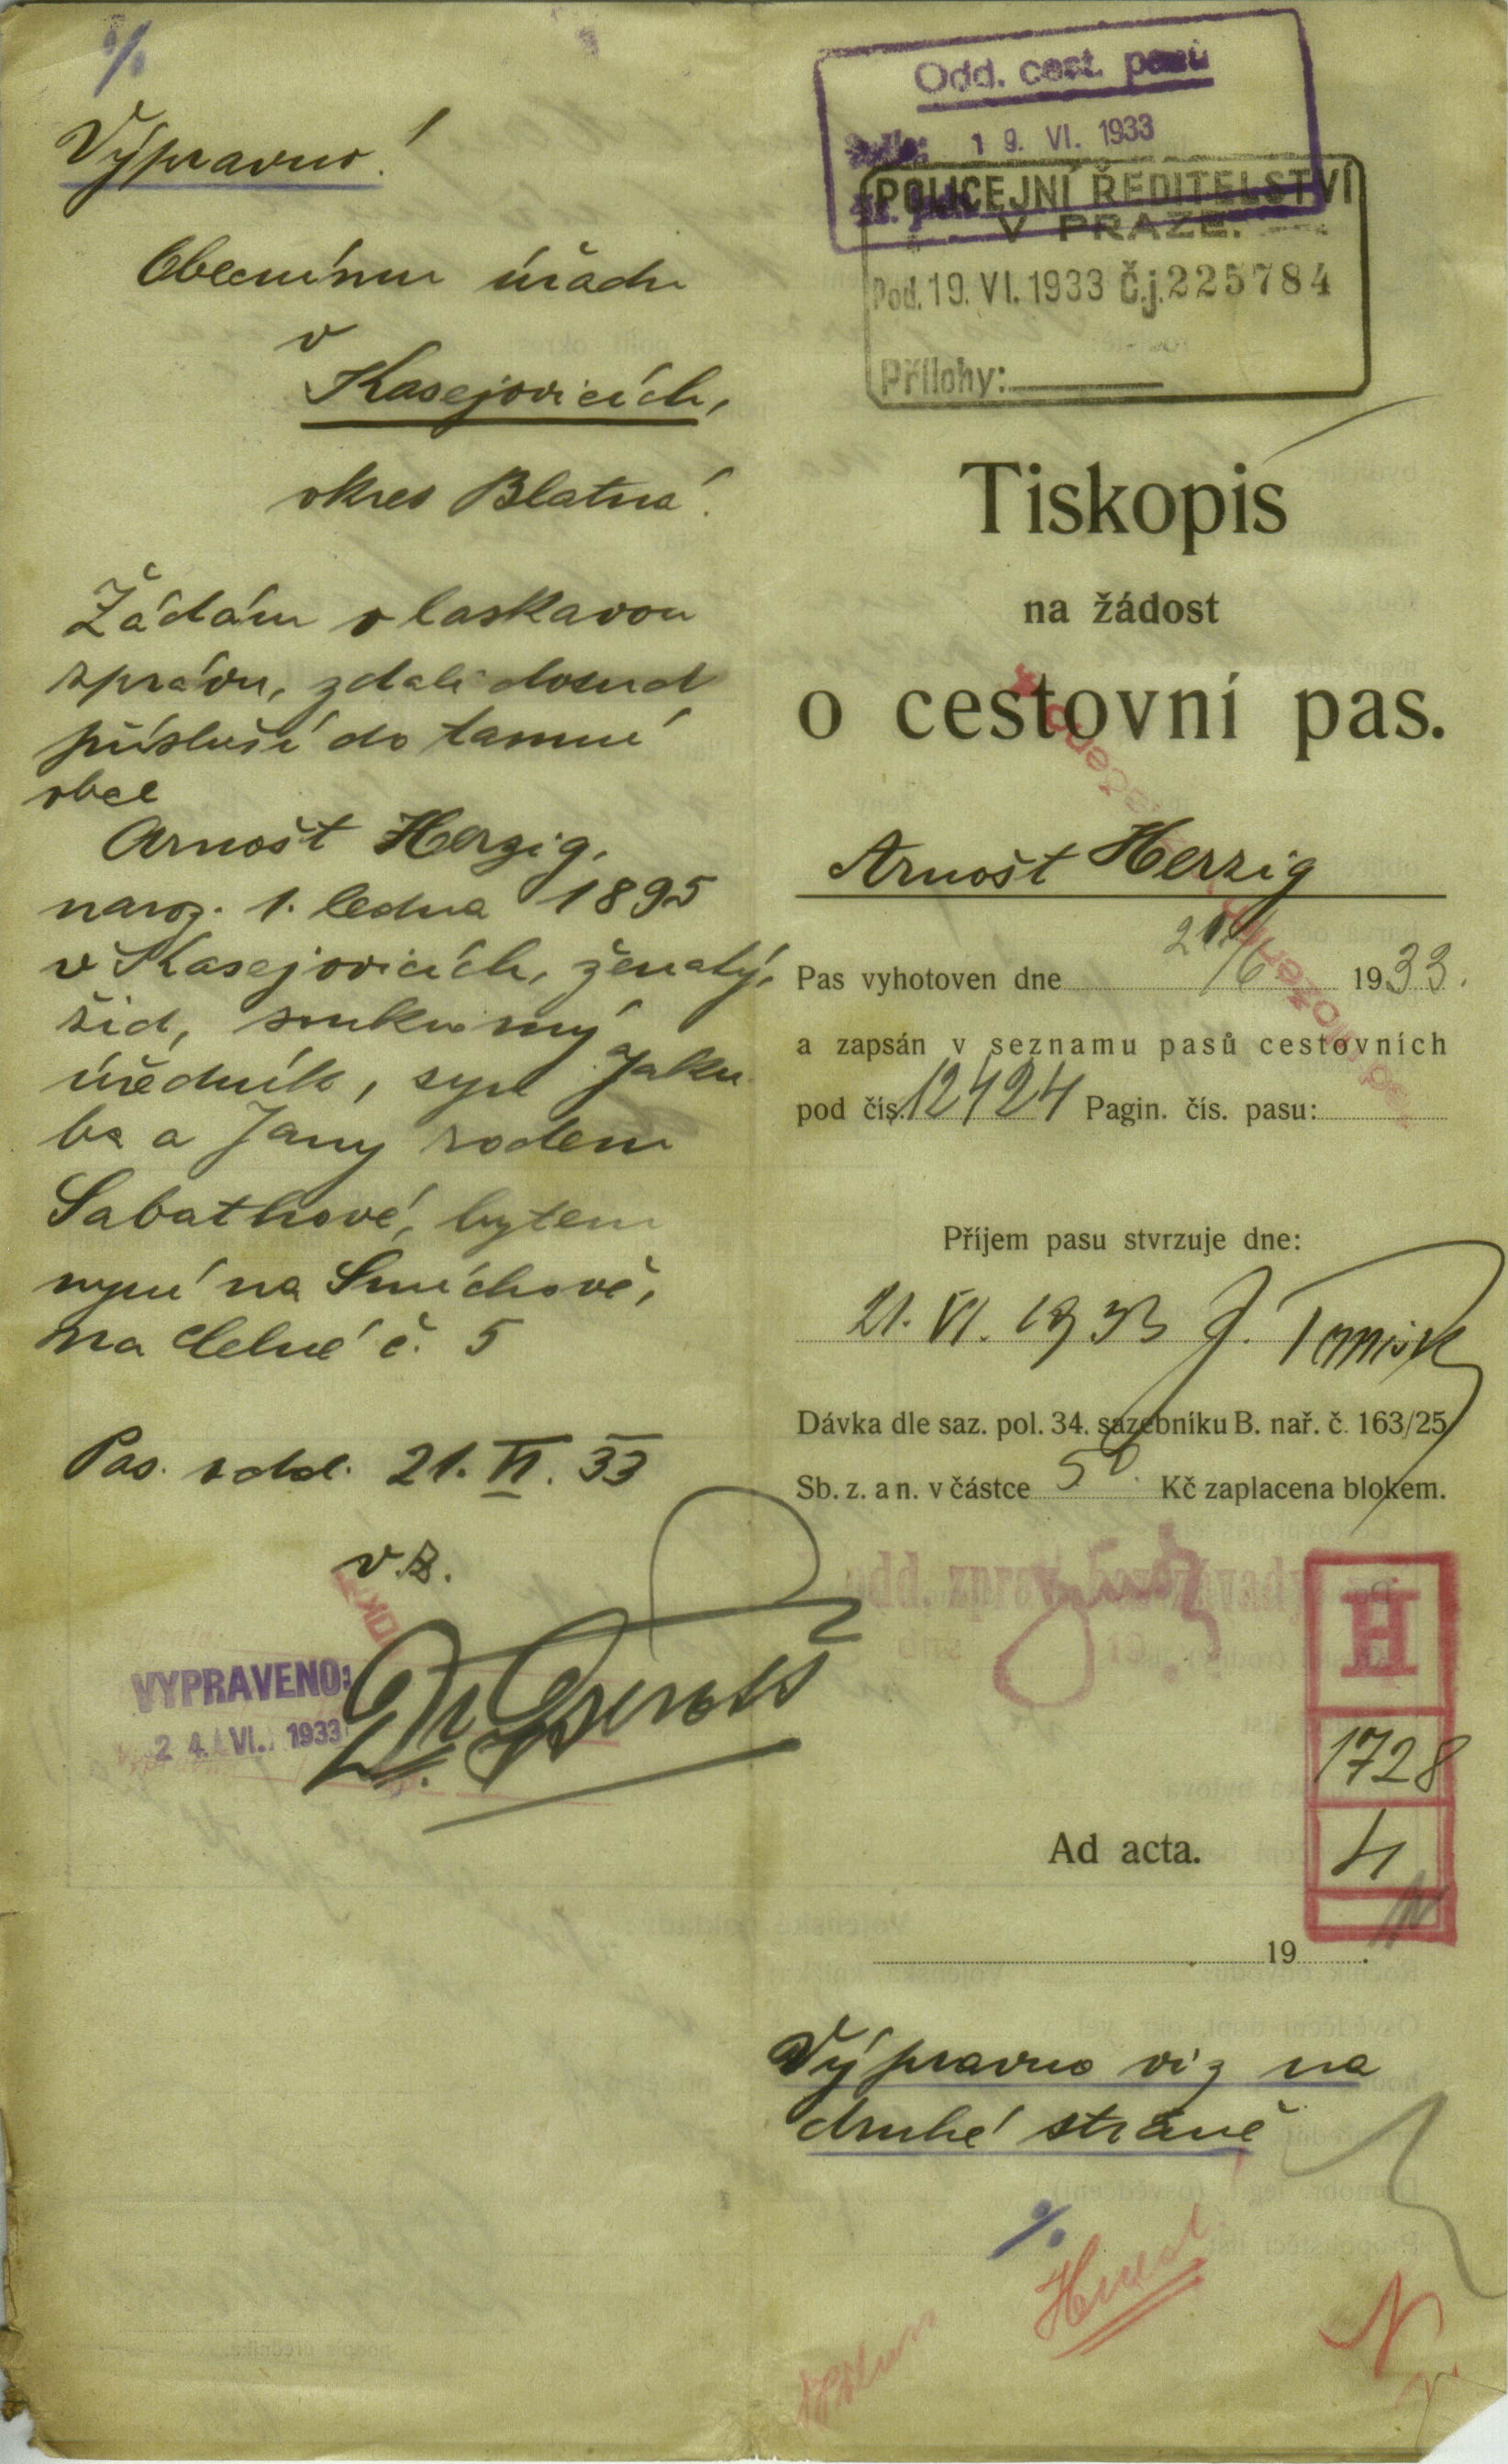 Výpravno!
Obecnímu úřadu
v
Kasejovicích,
okres Blatná.
Žádám o laskavou
zprávu, zdali dosud
přísluší do tamní
obce
Arnošt Herzig,
naroz. 1. ledna 1895
v Kasejovicích, ženatý,
žid, soukromý
úředník, syn Jaku
ba a Jany rodem
Sabathové, bytem
nyní na Smíchově,
na Celné č. 5
Pas. odd. 21. VI. 33
v.z.
VYPRAVENO:
24. VI. 1933
Odd. cest. pasů
19. VI. 1933
POLICEJNÍ ŘEDITELSTVÍ
V PRAZE.
Pod. 19. VI. 1933 Č.j. 225784
Přílohy:
Tiskopis
na žádost
o cestovní pas.
Arnošt Herzig
Pas vyhotoven dne 21/6 1933.
a zapsán v seznamu pasů cestovních
pod čís. 12424 Pagin. čís. pasu:
Příjem pasu stvrzuje dne:
21. VI. 1933 J.
Dávka dle saz. pol. 34. sazebníku B. nař. č. 163/25
Sb. z. a n. v částce 50 Kč zaplacena blokem.
H
1728
4
Ad acta.
19
Výpravno viz na
druhé straně